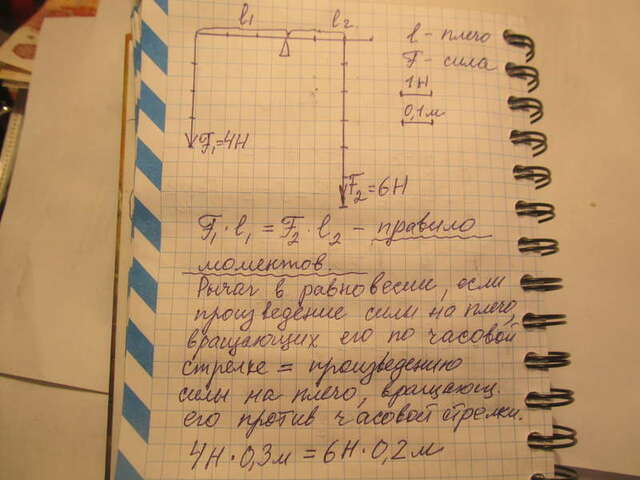 l - плечо
F - сила
1Н
0,1м
l₁ l₂
F₁=4Н
F₂=6Н
F₁·l₁ = F₂·l₂ - правило
моментов.
Рычаг в равновесии, если
произведение сил на плечо,
вращающих его по часовой
стрелке = произведению
силы на плечо, вращающ.
его против часовой стрелки.
4Н·0,3м = 6Н·0,2м